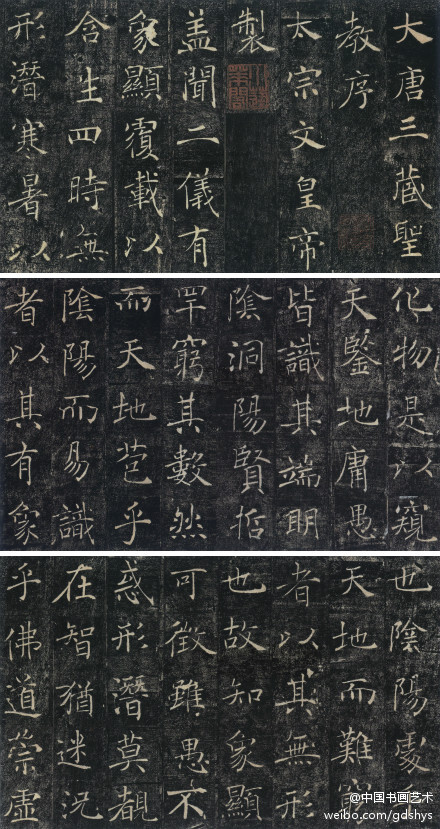 大唐三藏聖
教序
太宗文皇帝
製
盖聞二儀有
象顯覆載以
含生四時無
形潛寒暑以
化物是以窺
天鑒地庸愚
皆識其端明
陰洞陽賢哲
罕窮其數然
而天地苞乎
陰陽而易識
者以其有象
也陰陽處
天地而難窮
者以其無形
也故知象顯
可徵雖愚不
惑形潛莫覩
在智猶迷況
乎佛道崇虛
@中国书画艺术
weibo.com/gdshys